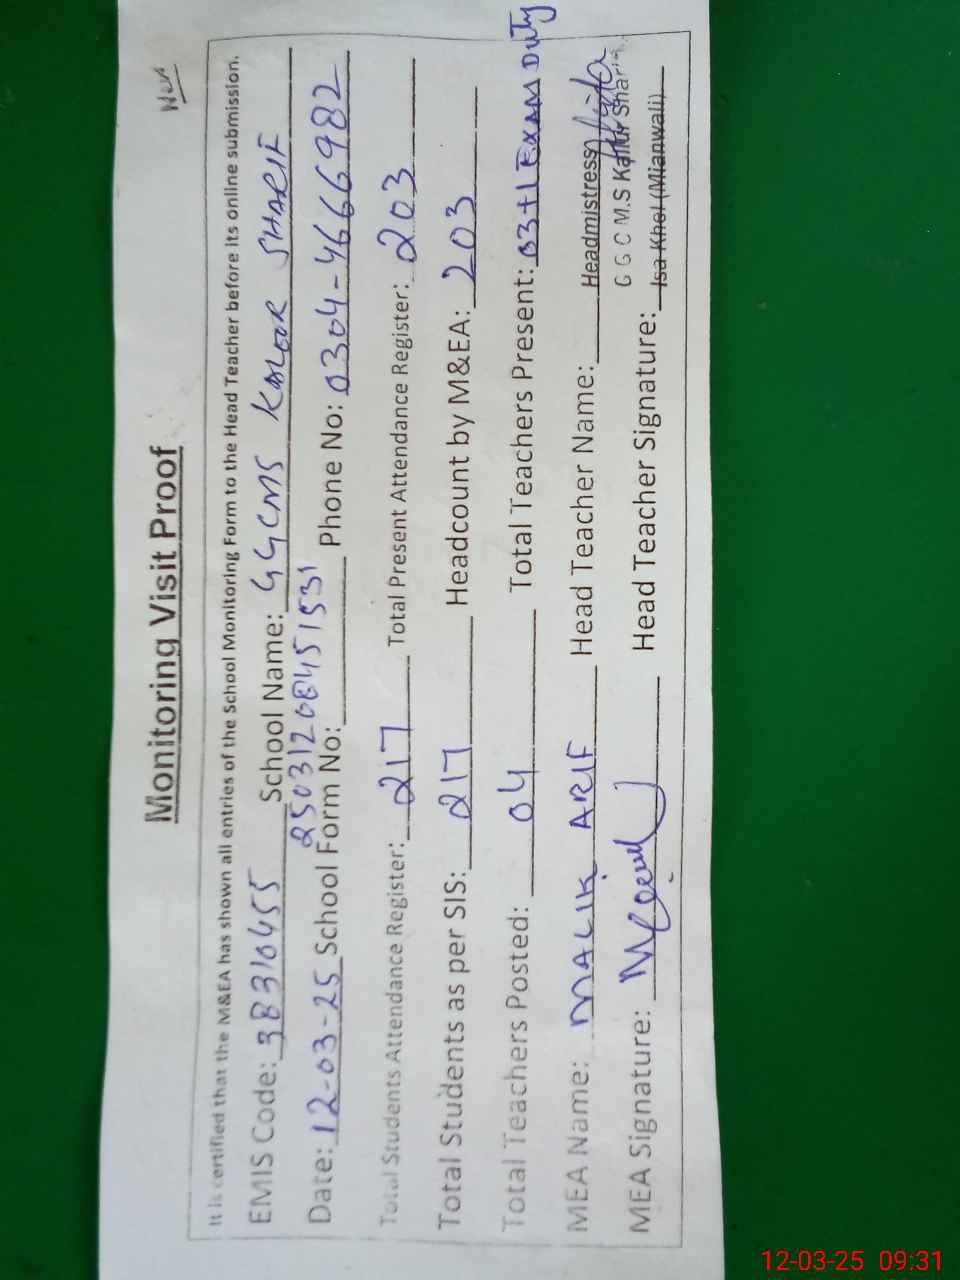 New
Monitoring Visit Proof
It is certified that the M&EA has shown all entries of the School Monitoring Form to the Head Teacher before its online submission.
EMIS Code: 38310455 School Name: GGCMS KALOOR SHARIF
Date: 12-03-25 School Form No: 25031208451531 Phone No: 0304-4666982
Total Students Attendance Register: 217 Total Present Attendance Register: 203
Total Students as per SIS: 217 Headcount by M&EA: 203
Total Teachers Posted: 04 Total Teachers Present: 03+1 EXAM DUTY
MEA Name: MALIK ARIF Head Teacher Name: Headmistress
G G C M.S Kallur Sharif
MEA Signature: Head Teacher Signature: Isa Khel (Mianwali)
12-03-25 09:31